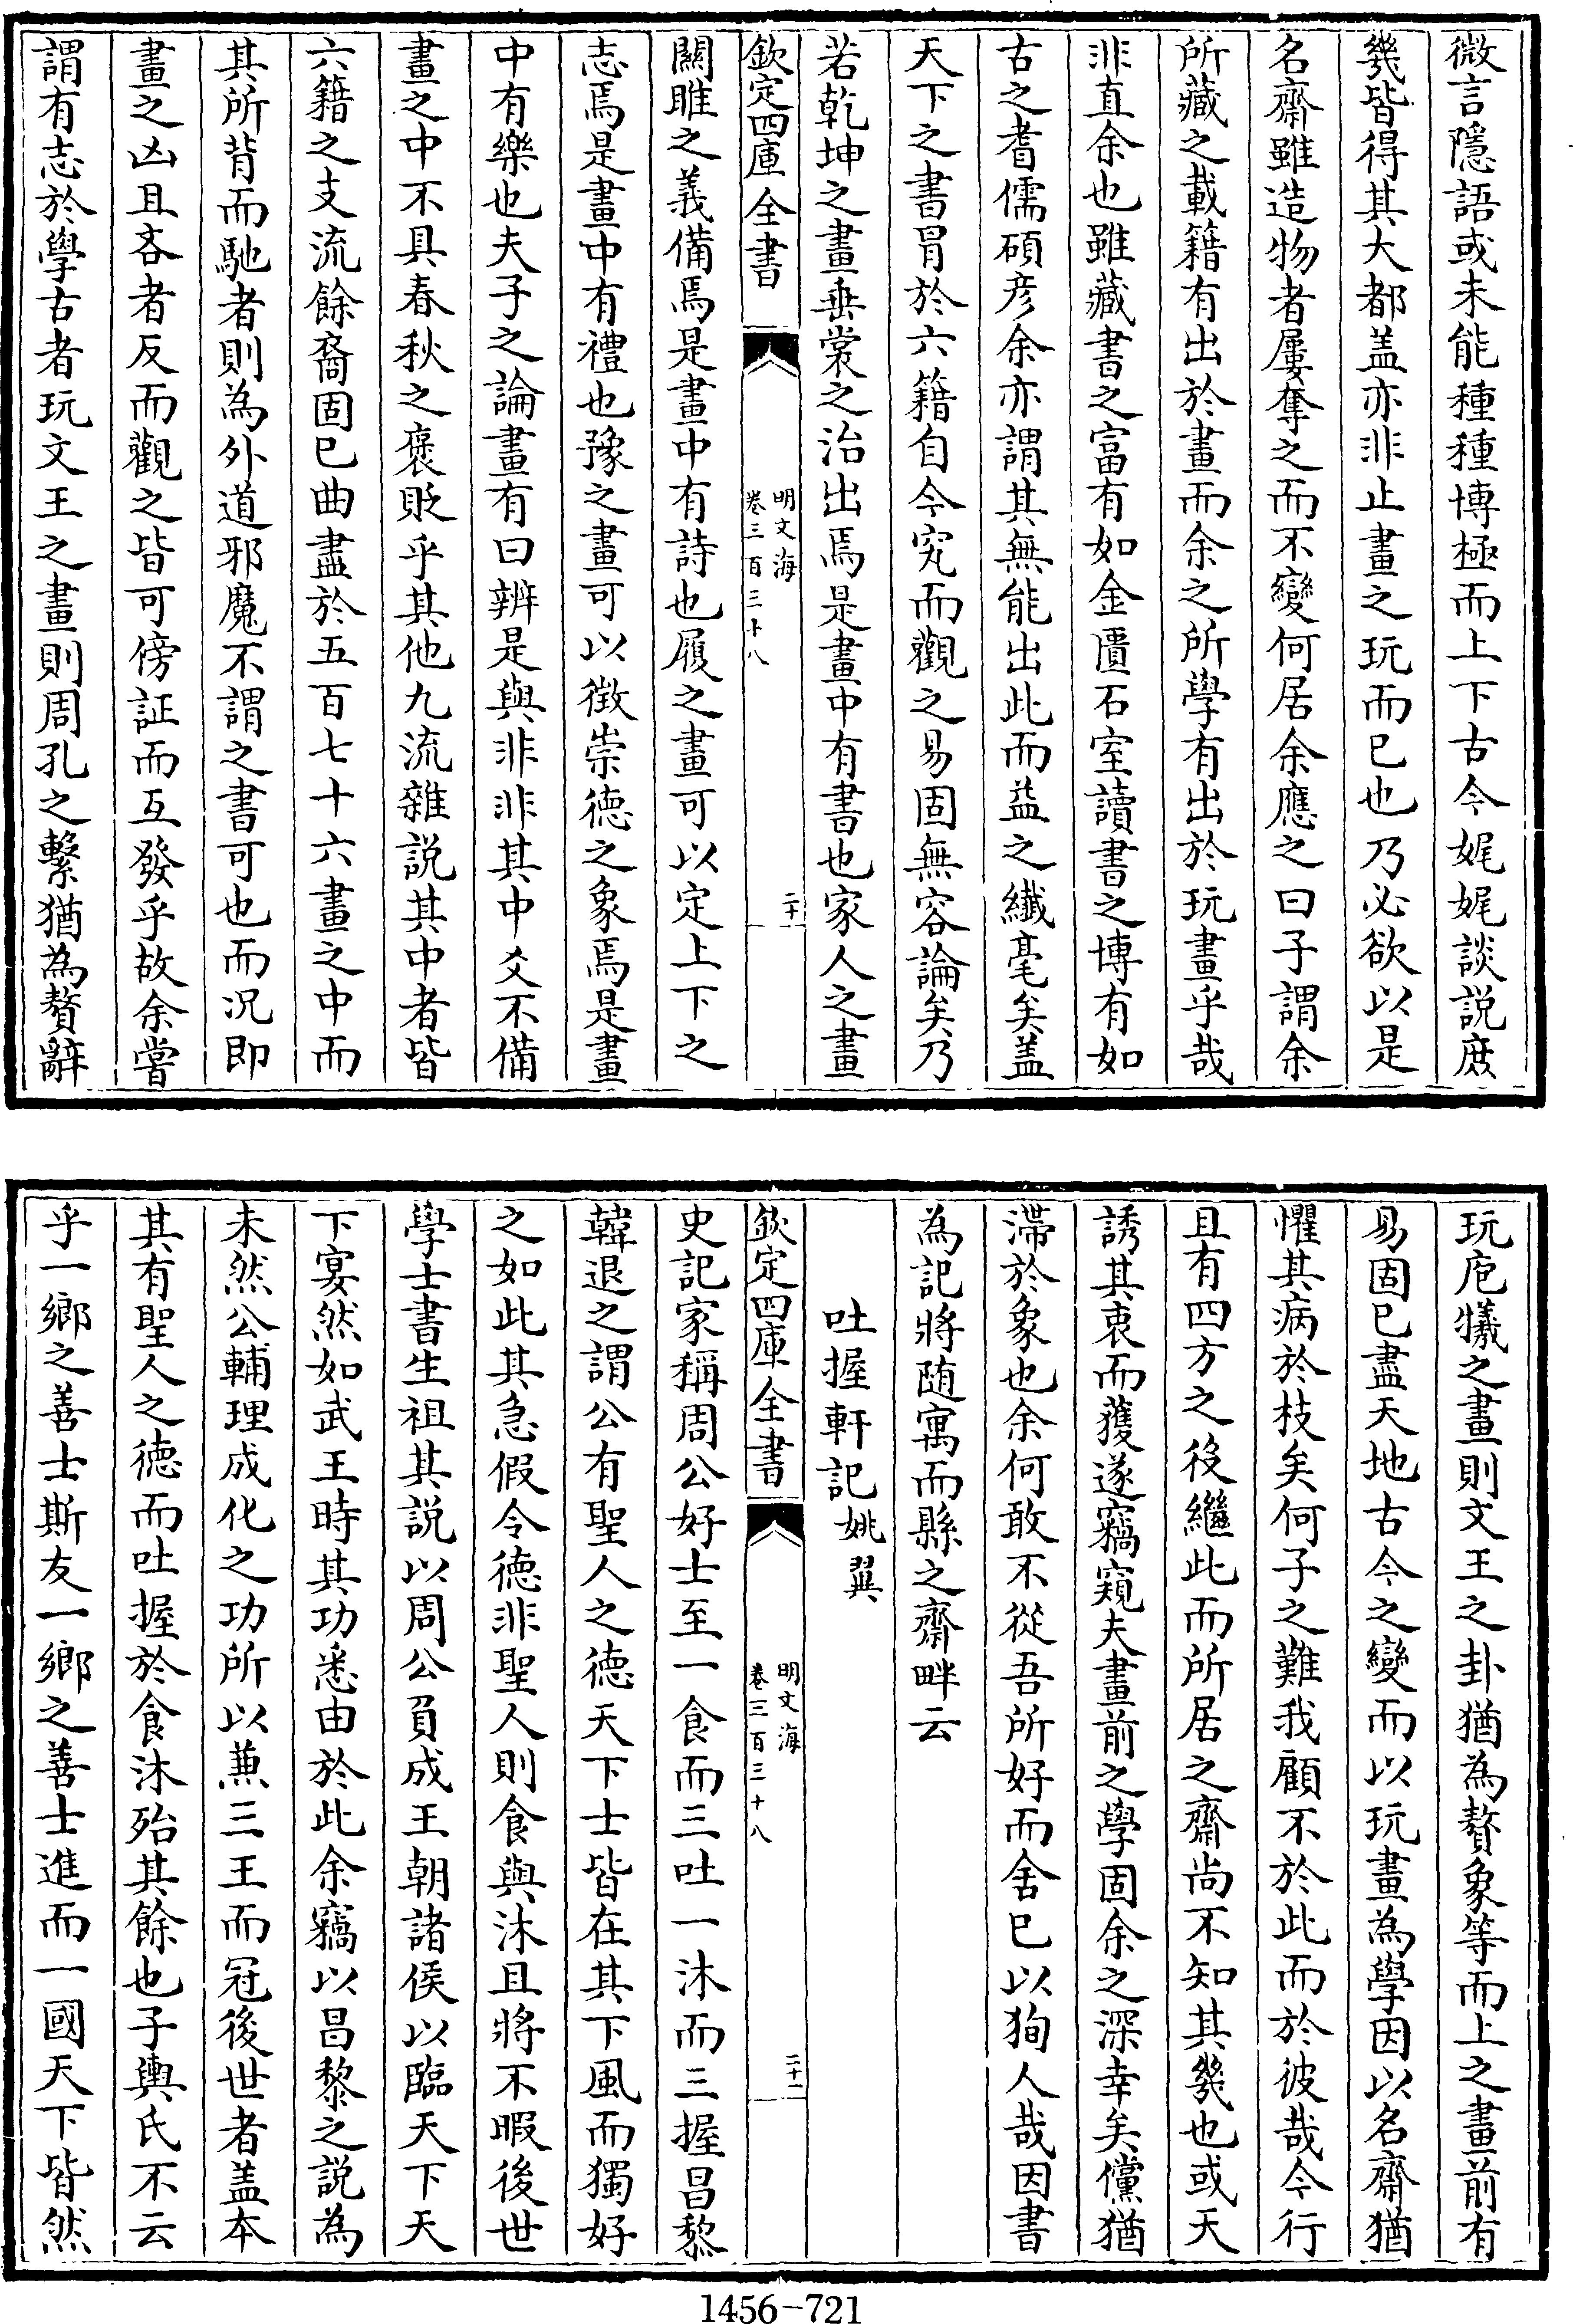 微言隱語或未能種種博極而上下古今娓娓談説庶
幾皆得其大都盖亦非止畫之玩而已也乃必欲以是
名齋雖造物者屢奪之而不變何居余應之曰子謂余
所藏之載籍有出於畫而余之所學有出於玩畫乎哉
非直余也雖藏書之富有如金匱石室讀書之博有如
古之耆儒碩彦余亦謂其無能出此而益之纎毫矣盖
天下之書冒於六籍自今究而觀之易固無容論矣乃
若乾坤之畫垂裳之治出焉是畫中有書也家人之畫
欽定四庫全書
明文海
卷三百三十八
二十
關雎之義備焉是畫中有詩也履之畫可以定上下之
志焉是畫中有禮也豫之畫可以徴崇德之象焉是畫
中有樂也夫子之論畫有曰辨是與非非其中爻不備
畫之中不具春秋之褒貶乎其他九流雜説其中者皆
六籍之支流餘裔固已曲盡於五百七十六畫之中而
其所背而馳者則為外道邪魔不謂之書可也而况即
畫之凶且吝者反而觀之皆可傍証而互發乎故余嘗
謂有志於學古者玩文王之畫則周孔之繫猶為贅辭
玩庖犧之畫則文王之卦猶為贅象等而上之畫前有
易固已盡天地古今之變而以玩畫為學因以名齋猶
懼其病於枝矣何子之難我顧不於此而於彼哉今行
且有四方之役繼此而所居之齋尚不知其幾也或天
誘其衷而獲遂竊窺夫畫前之學固余之深幸矣儻猶
滯於象也余何敢不從吾所好而舍已以狥人哉因書
為記將随寓而縣之齋畔云
吐握軒記姚翼
欽定四庫全書
明文海
卷三百三十八
二十一
史記家稱周公好士至一食而三吐一沐而三握昌黎
韓退之謂公有聖人之德天下士皆在其下風而獨好
之如此其急假令德非聖人則食與沐且將不暇後世
學士書生祖其説以周公負成王朝諸侯以臨天下天
下宴然如武王時其功悉由於此余竊以昌黎之説為
未然公輔理成化之功所以兼三王而冠後世者盖本
其有聖人之德而吐握於食沐殆其餘也子輿氏不云
乎一鄉之善士斯友一鄉之善士進而一國天下皆然
1456-721